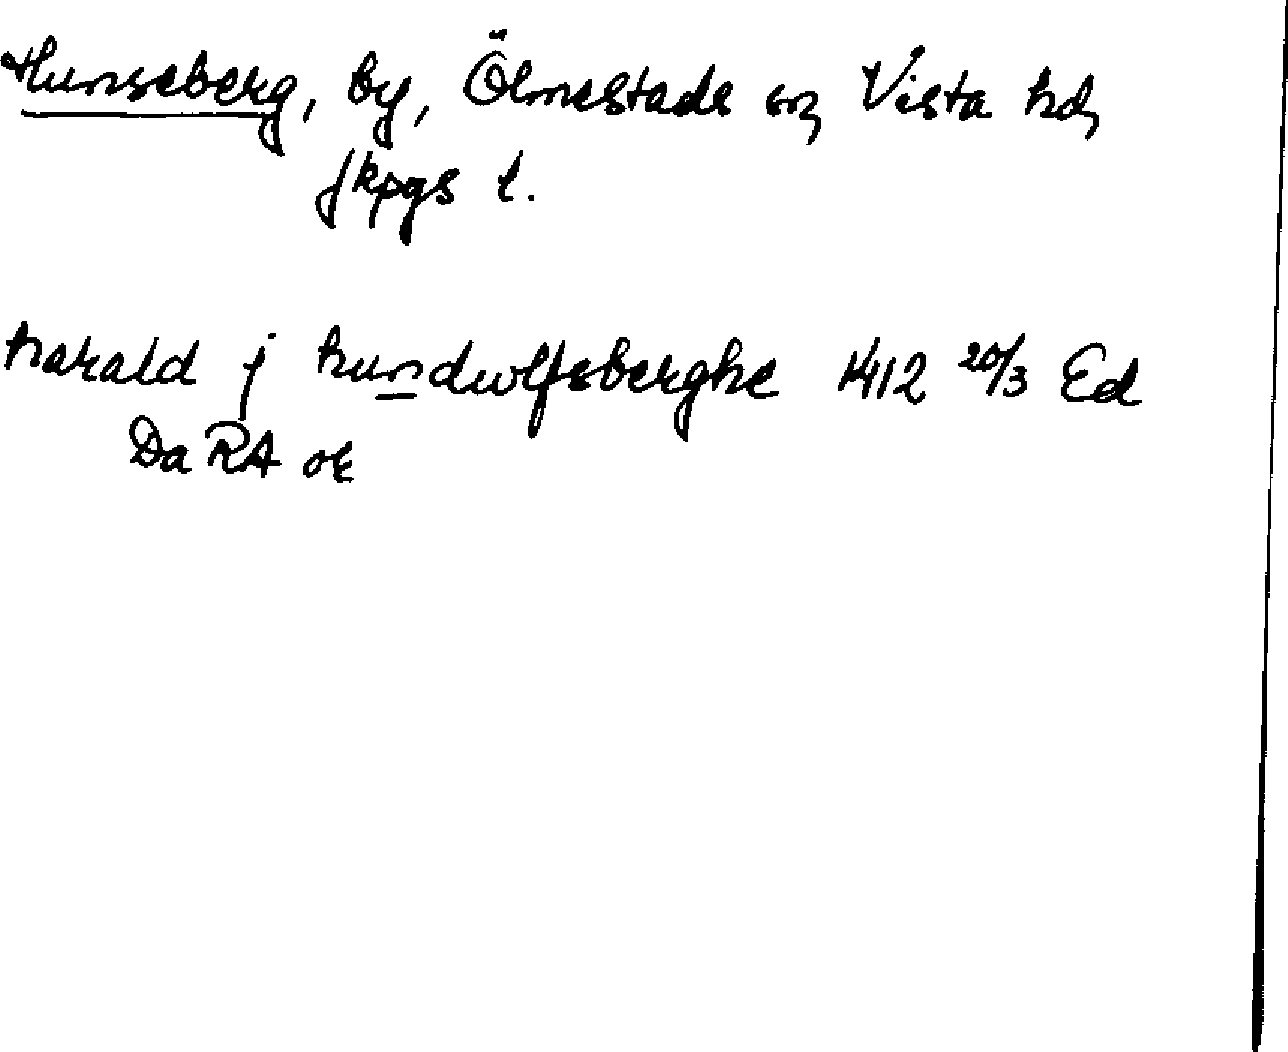 Hunseberg, by, Ölmestads sn, Vista hd,
Jkpgs l.
harald j hundwlfsberghe 1412 20/3 Ed
Da RA or